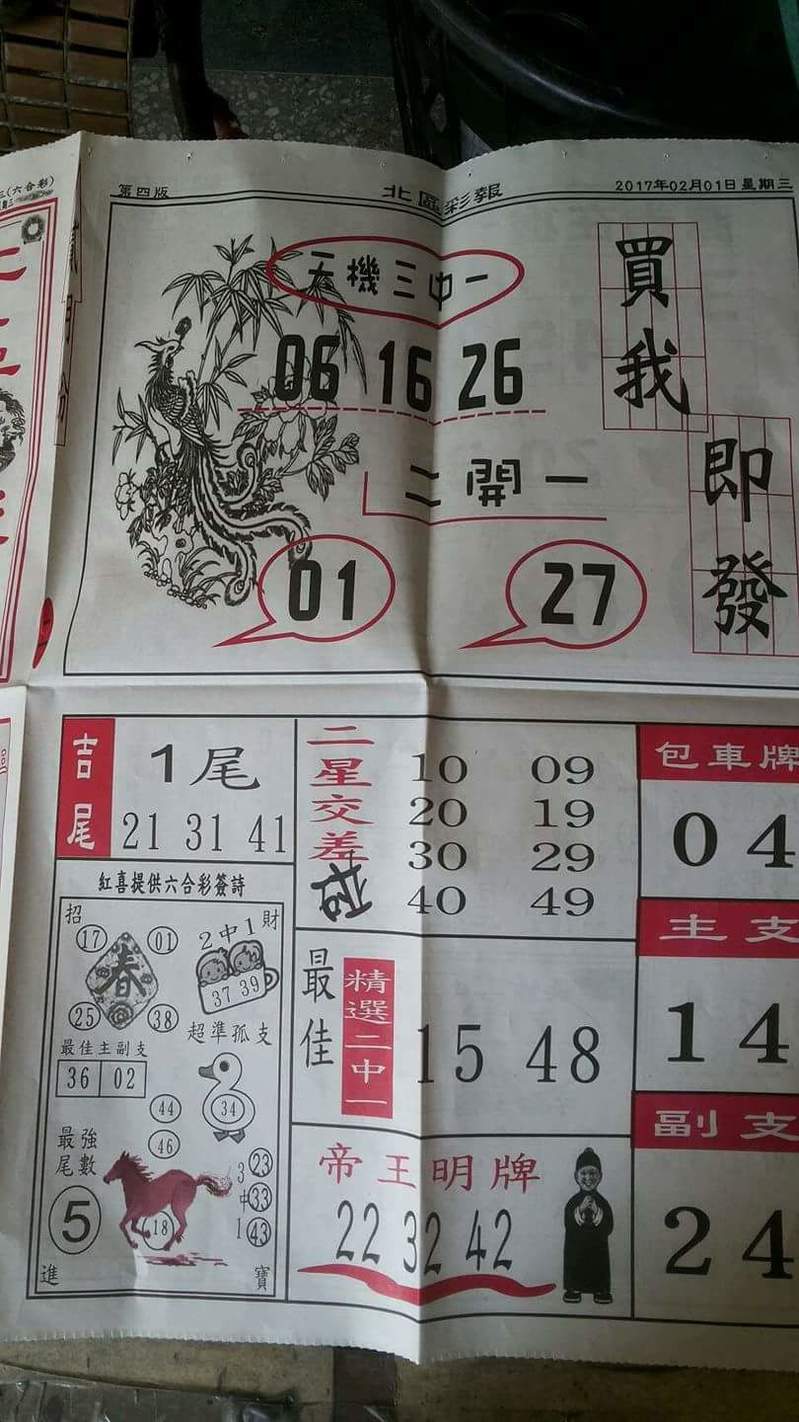 (六合彩)
第四版 北區彩報 2017年02月01日星期三
天機三中一
06 16 26
二開一
01 27
買我
即發
吉尾
1尾
21 31 41
二星交差
10 09
20 19
30 29
40 49
包車牌
04
紅喜提供六合彩簽詩
招 財
17 01
春
25 38
2中1
37 39
超準孤支
34
最佳主副支
36 02
44
46
最強尾數
5
18
3中1
23
33
43
進 寶
最佳
精選二中一
15 48
主支
14
帝王明牌
22 32 42
副支
24